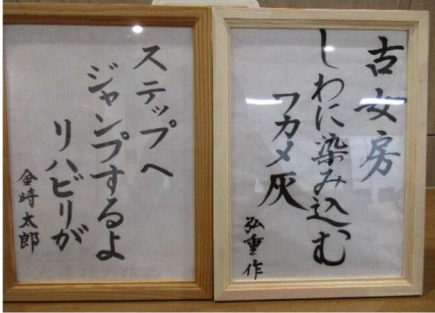 古女房
しわに染み込む
ワカメ灰
弘重作
ステップへ
ジャンプするよ
リハビリが
金時太郎